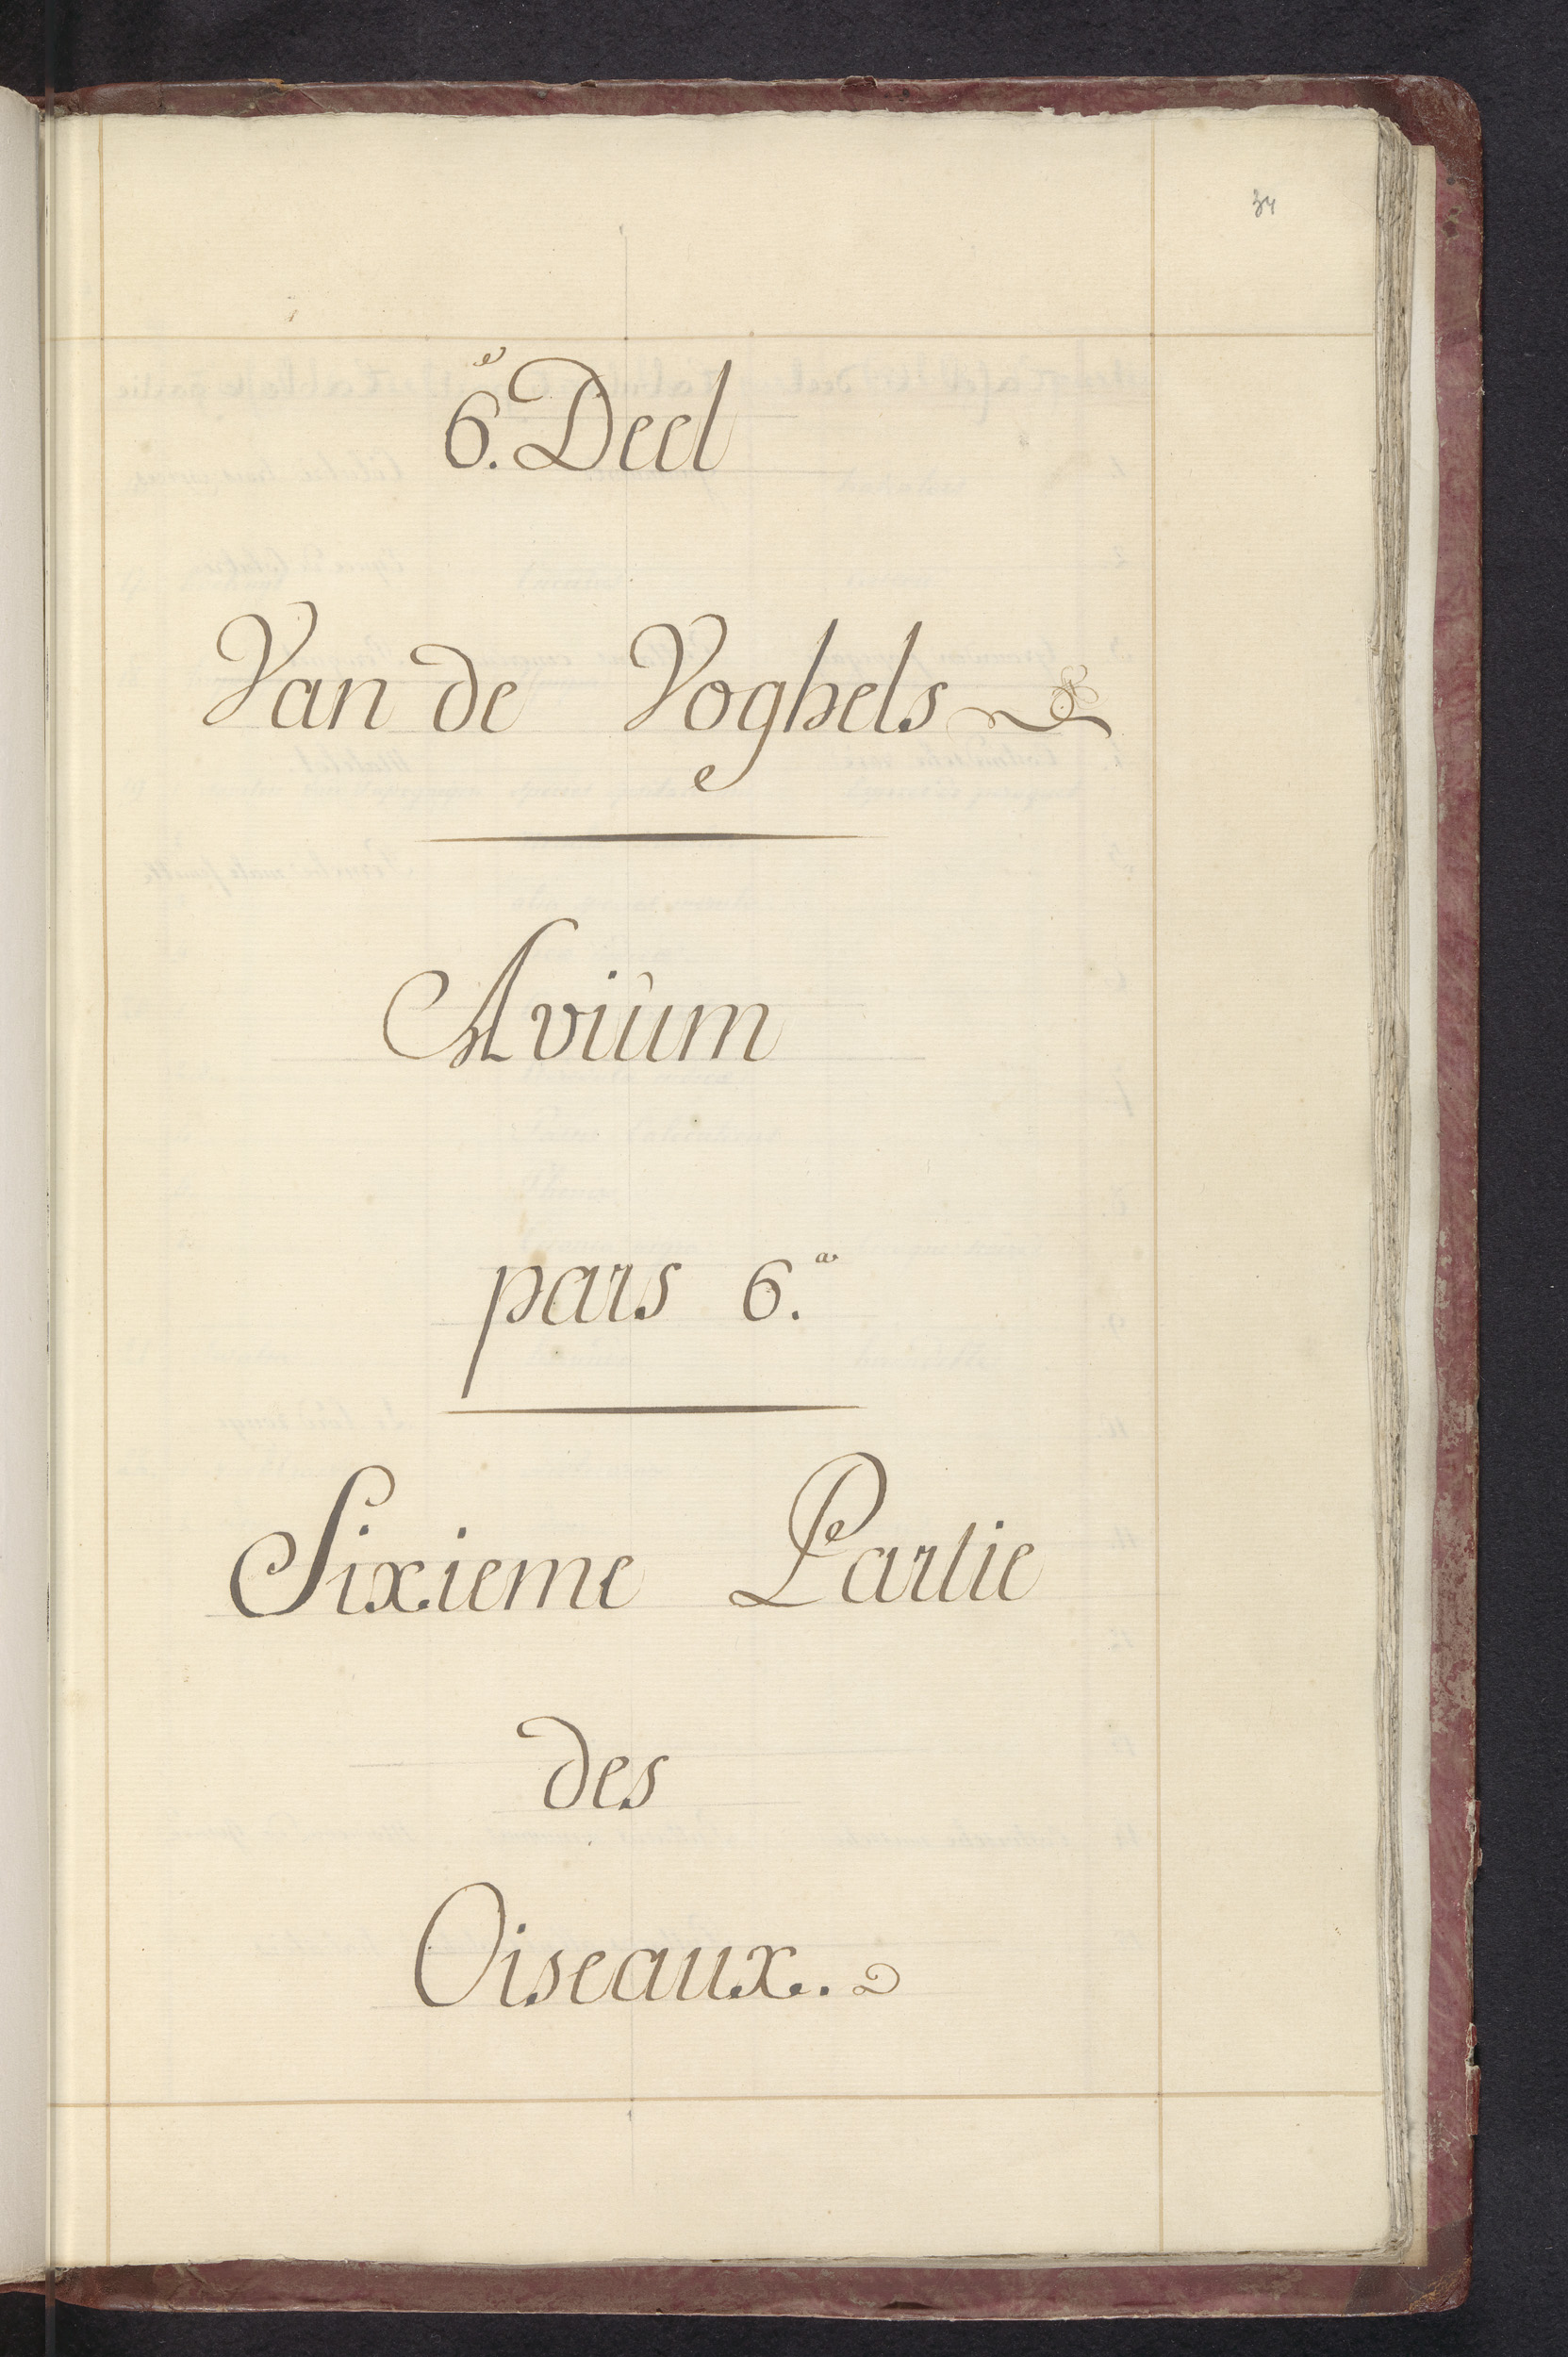 34
6.e Deel
Van de Voghels
Avium
pars 6.a
Sixieme Partie
des
Oiseaux.